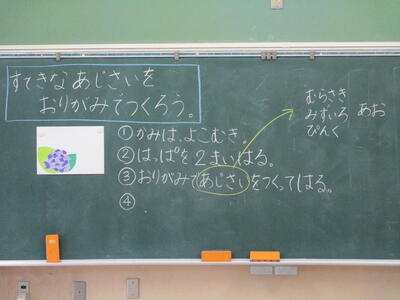 すてきなあじさいを
おりがみでつくろう。
①かみは、よこむき。
②はっぱを2まいはる。
③おりがみであじさいをつくってはる。
④
むらさき
みずいろ
ぴんく
あお